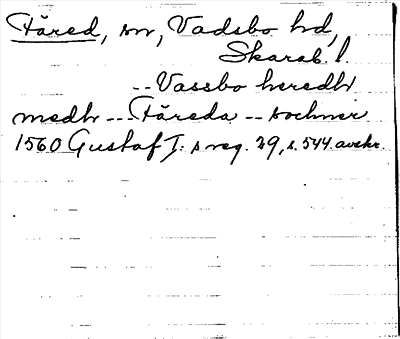 Färed, sn, Vadsbo hd,
Skarab. l.
-- Vassbo heredh
medh -- Färeda -- sochner
1560 Gustaf I:s reg. 29, s. 544. avskr.